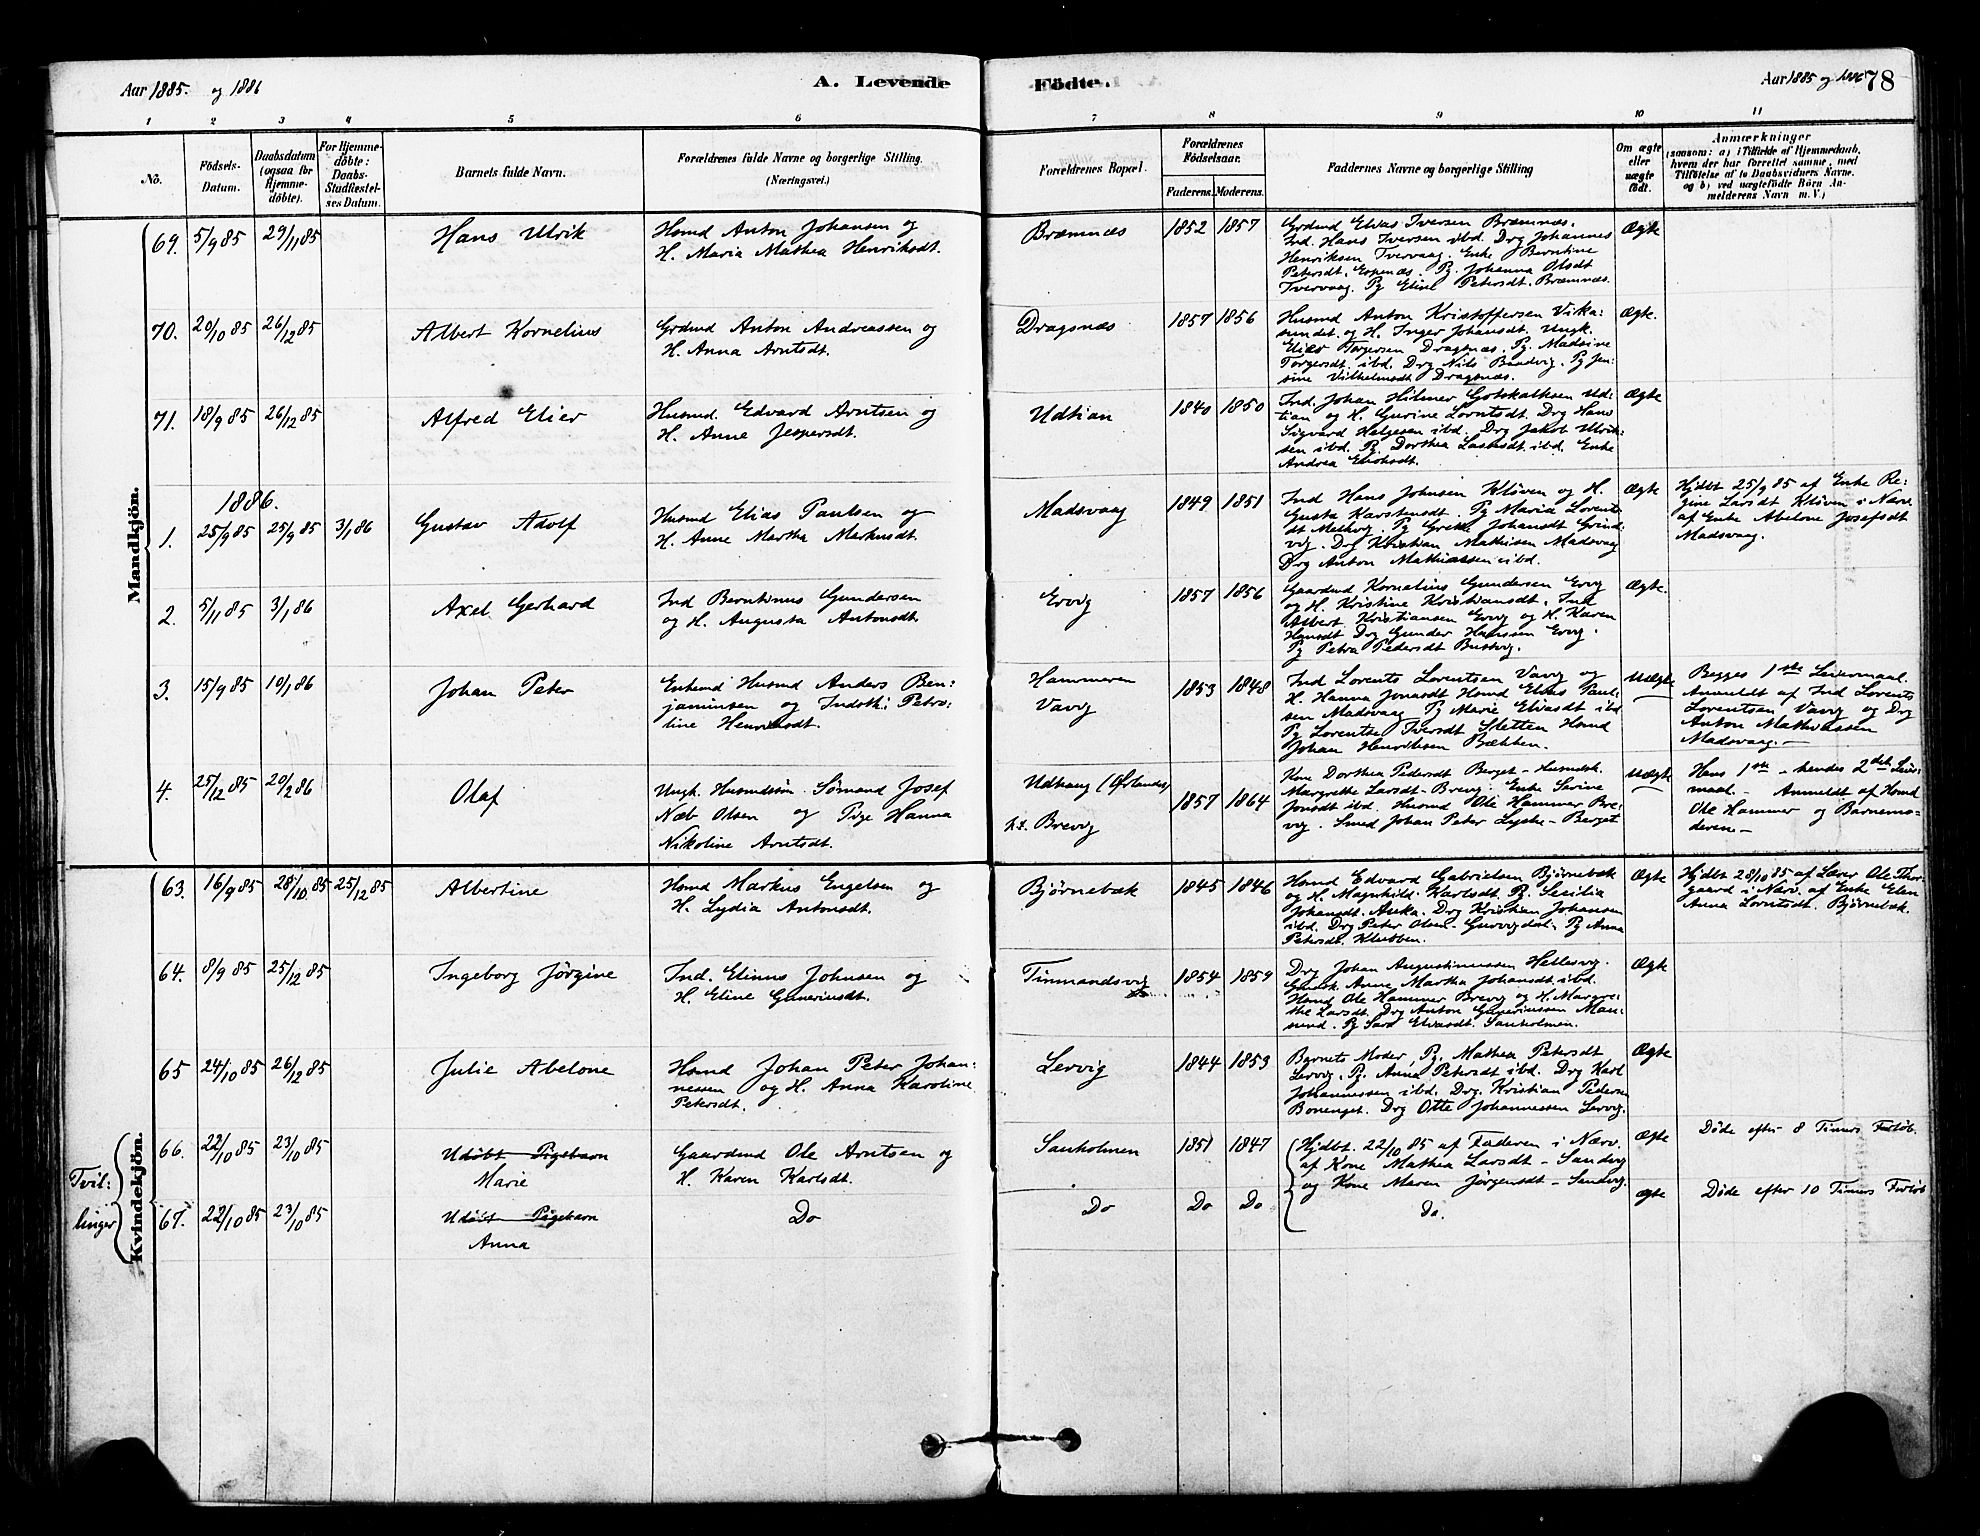 Aar 1885. og 1886
A. Levende
Födte.
Aar 1885 og 1886
78
1 2 3 4 5 6 7 8 9 10 11
No.
Födsels-Datum.
Daabsdatum (ogsaa for Hjemme-döbte).
For Hjemme-döbte: Daabs-Stadfæstel-ses Datum.
Barnets fulde Navn.
Forældrenes fulde Navne og borgerlige Stilling.
(Næringsvei.)
Forældrenes Bopæl.
Forældrenes Födselsaar.
Faderens. Moderens.
Faddernes Navne og borgerlige Stilling
Om ægte eller uægte födt.
Anmærkninger
(saasom: a) i Tilfælde af Hjemmedaab, hvem der har forrettet samme, med Tilföielse af to Daabsvidners Navne, og b) ved uægtefödte Börn An-melderens Navn m. V.)
Mandkjön.
69. 5/9 85 29/11 85
Hans Ulrik
Husmd Anton Johansen og
H. Maria Mathea Henriksdt.
Bræmnæs
1852 1857
Grdmd Elias Iversen Bræmnæs.
Ind. Hans Iversen ibd. Drg Johannes
Henriksen Tvervaag. Enke Berntine
Petersdt. Espenæs. Pg. Johanna Olsdt
Tvervaag. Pg Eline Petersdt. Bræmnæs.
Ægte
70. 20/10 85 26/12 85
Albert Kornelius
Grdmd Anton Andreassen og
H. Anna Arntsdt.
Dragsnæs
1857 1856
Husmd Anton Kristoffersen Virka-
sundet og H. Inger Johansdt. Ungk.
Elias Torgersen Dragsnæs. Pg. Madsine
Torgersdt. ibd. Drg Nils Bandvig. Pg Jen-
sine Vilhelmsdt Dragsnæs.
Ægte.
71. 18/9 85 26/12 85
Alfred Elier
Husmd. Edvard Arntsen og
H. Anne Jespersdt.
Udtian
1840 1850
Ind. Johan Hilmer Gotskalksen Ud-
tian og H. Gurine Lorntsdt. Drg Hans
Sigvard Helgesen ibd. Drg Jakob Ulrik-
sen ibd. Pg. Dorthea Larsdt. ibd. Enke
Andrea Enoksdt.
Ægte
1886.
1. 25/9 85 25/9 85 3/1 86
Gustav Adolf
Husmd Elias Paulsen og
H. Anne Martha Markusdt.
Madsvaag
1849 1851
Ind Hans Johnsen Kløven og H.
Gusta Karstensdt. Pg Maria Lorents-
dt Melhvig. Pg Grethe Johansdt Grind-
vig. Drg Kristian Mathisen Madsvaag
Drg Anton Mathiassen ibd.
Ægte
Hjdbt 25/9 85 af Enke Re-
gine Larsdt Kløven i Nærv.
af Enke Abelone Josefsdt
Madsvaag.
2. 5/11 85 3/1 86
Axel Gerhard
Ind Berntinus Gundersen
og H. Augusta Antonsdt.
Ervig
1857 1856
Gaardmd Kornelius Gundersen Ervig
og H. Kristine Kristiansdt. Ind
Albert Kristiansen Ervig og H. Karen
Hansdt. Drg Gunder Hanssen Ervig.
Pg Petra Pedersdt Bustvig.
Ægte.
3. 15/9 85 10/1 86
Johan Peter
Enkemd Husmd Anders Ben-
jaminsen og Indstk: Petro-
line Henriksdt.
Hammeren
Vavig
1853 1848
Ind Lorents Lorentsen Vavig og
H. Hanna Jonasdt Husmd Elias Paul-
sen Madsvaag Pg Marie Eliasdt ibd
Pg Lorentse Iversdt Sletten Husmd
Johan Henriksen Bækken.
Uægte
Begges 1ste Leiermaal.
Anmeldt af Ind Lorents
Lorentsen Vavig og Drg
Anton Mathiassen
Madsvaag.—
4. 25/12 85 20/2 86
Olaf
Ungk. Husmdssøn Sømand Josef
Næb Olsen og Pige Hanna
Nikoline Arntsdt.
Udhaug (Ørlandet)
Brevig
1857 1864
Kone Dorthea Pedersdt Berget - Husmdsk.
Margrethe Larsdt - Brevig. Enke Sarine
Jonsdt ibd. Husmd Ole Hammer Bre-
vig. Smed Johan Peter Lyshe - Berget
Uægte
Hans 1ste - hendes 2det Leier-
maal. - Anmeldt af Husmd
Ole Hammer og Barnemo-
deren.—
Kvindekjön.
63. 16/9 85 28/10 85 25/12 85
Albertine
Husmd Markus Engelsen og
H. Lydia Antonsdt.
Bjørnebæk
1845 1846
Husmd Edvard Gabrielsen Bjørnebæk
og H. Magnhild Karlsdt. Pg. Secilia
Johansdt. Auka. Drg Kristian Johansen
ibd. Drg Peter Olsen - Gurvigdal. Pg Anna
Petersdt. Klubben.
Ægte
Hjdbt 28/10 85 af Lærer Ole Thor-
gaard i Nærv. af Enke Elen
Anna Lorntsdt. Bjørnebæk.
64. 8/9 85 25/12 85
Ingeborg Jørgine
Ind. Elinus Johnsen og
H. Eline Gunerinsdt.
Tinmandsvig
1854 1859
Drg Johan Augustinussen Hellesvig.
Anne Martha Johansdt. ibd.
Husmd Ole Hammer Brevig og H. Margre-
the Larsdt. Drg Anton Gunerinssen Mau-
sund. Pg Sara Eliasdt. Sauholmen.
Ægte
65 24/10 85 26/12 85
Julie Abelone
Husmd Johan Peter Johan-
nessen og H. Anna Karoline
Petersdt.
Lervig
1844 1853
Barnets Moder, Pg. Mathea Petersdt
Lervig. Pg. Anna Petersdt ibd. Drg Karl
Johannessen ibd. Drg. Kristian Pedersen
Bonenget. Drg Otte Johannessen Lervig.
Ægte
Tvil-
linger
66. 22/10 85 23/10 85
Udøbt Pigebarn
Marie
Gaardmd Ole Arntsen og
H. Karen Karlsdt.
Sauholmen
1851 1847
Hjdbt. 22/10 85 af Faderen i Nærv.
af Kone Mathea Larsdt - Sandvig
og Kone Maren Jørgensdt - Sandvig.
Ægte
Døde efter 8 Timers Forløb.
67. 22/10 85 23/10 85
Udøbt Pigebarn
Anna
Do
Do
Do Do
Do.
Ægte
Døde efter 10 Timers Forløb